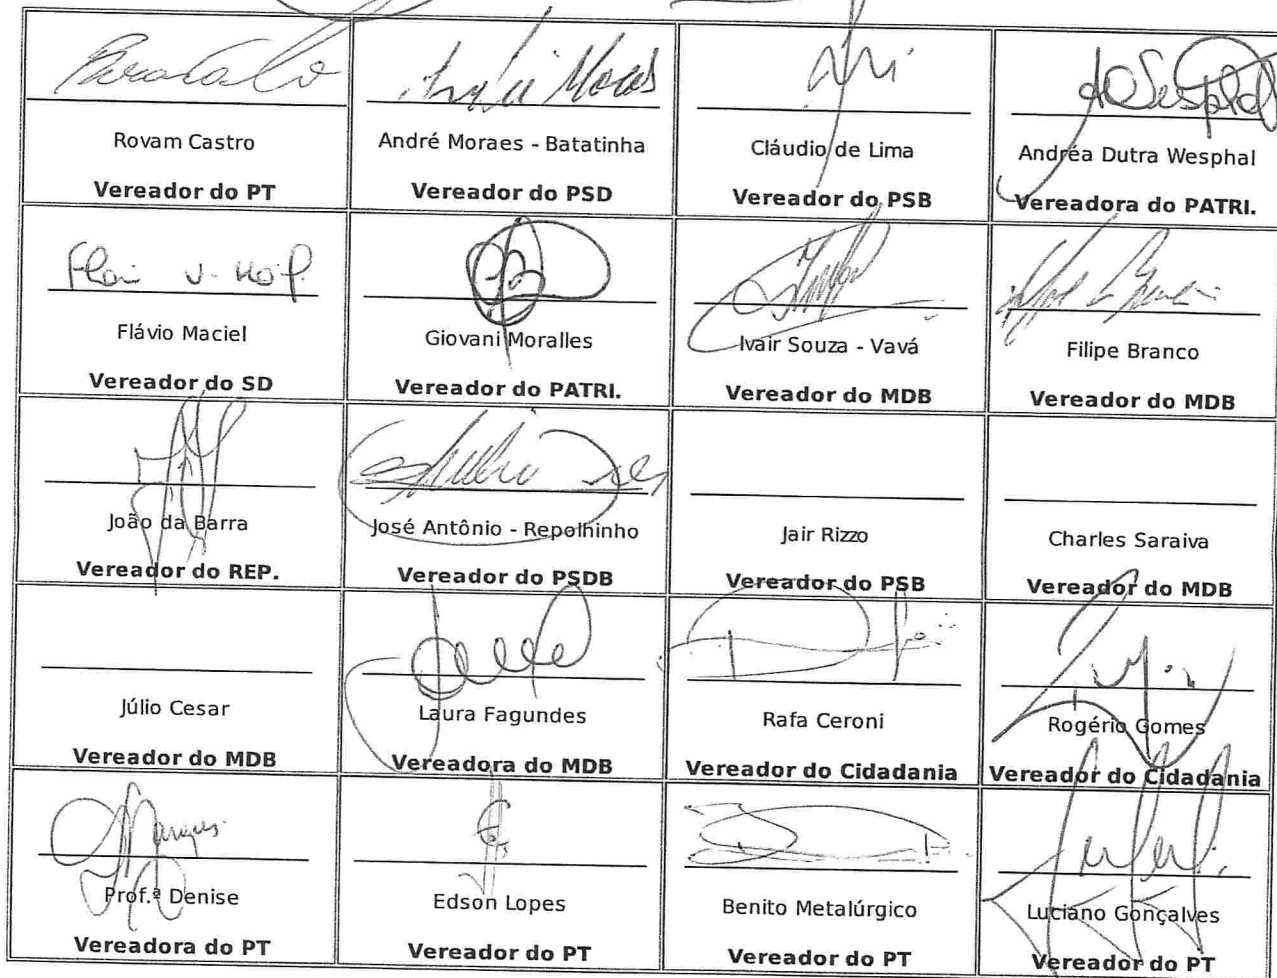 Rovam Castro
Vereador do PT
André Moraes - Batatinha
Vereador do PSD
Cláudio de Lima
Vereador do PSB
Andréa Dutra Wesphal
Vereadora do PATRI.
Flávio Maciel
Vereador do SD
Giovani Moralles
Vereador do PATRI.
Ivair Souza - Vavá
Vereador do MDB
Filipe Branco
Vereador do MDB
João da Barra
Vereador do REP.
José Antônio - Repolhinho
Vereador do PSDB
Jair Rizzo
Vereador do PSB
Charles Saraiva
Vereador do MDB
Júlio Cesar
Vereador do MDB
Laura Fagundes
Vereadora do MDB
Rafa Ceroni
Vereador do Cidadania
Rogério Gomes
Vereador do Cidadania
Prof.ª Denise
Vereadora do PT
Edson Lopes
Vereador do PT
Benito Metalúrgico
Vereador do PT
Luciano Gonçalves
Vereador do PT